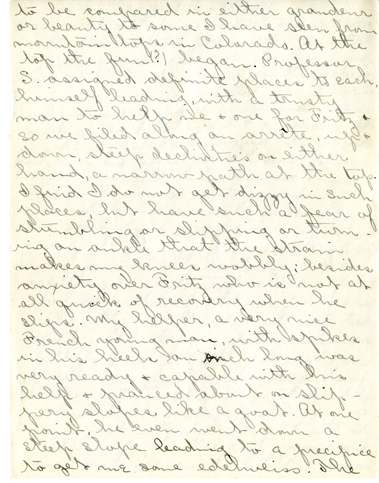 to be compared in either grandeur
or beauty to some I have seen from
mountain tops in Colorado. At the
top the fun(?) began. Professor
S. assigned definite places to each,
himself leading, with a trusty
man to help me + one for Fritz +
so we filed along an arrête, up +
down, steep declivities on either
hand, a narrow path at the top.
I find I do not get dizzy in such
places, but have such a fear of
stumbling or slipping or turn-
ing an ankle that the strain
makes my knees wobbly; besides
anxiety over Fritz who is not at
all quick of recovery when he
slips. My helper, a very nice
French young man, with spikes
in his heels an inch long was
very ready + capable with his
help + pranced about on slip-
pery slopes like a goat. At one
point, he even went down a
steep slope leading to a precipice
to get me some edelweiss. The